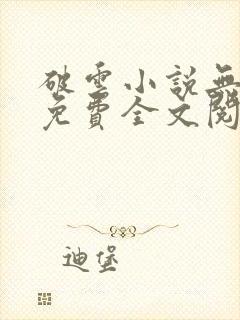 破雲小說無
免費全文閱
迪堡